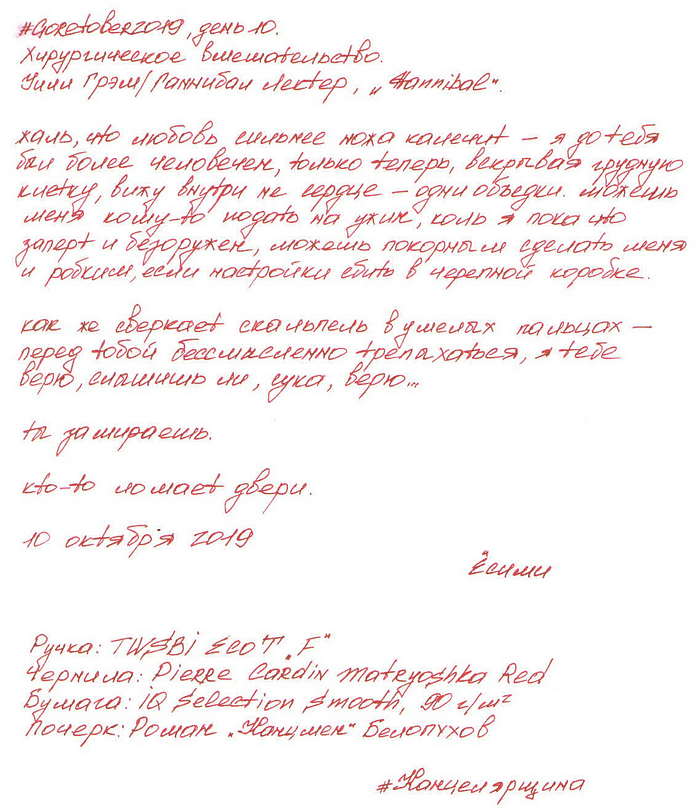 #Goretober2019, день 10.
Хирургическое вмешательство.
Уилл Грэм/Ганнибал Лектер, „Hannibal“.
жаль, что любовь сильнее ножа калечит – я до тебя
был более человечен, только теперь, вскрывая грудную
клетку, вижу внутри не сердце – одни объедки. можешь
меня кому-то подать на ужин, коль я пока что
заперт и безоружен, можешь покорным сделать меня
и робким, если настройки сбить в черепной коробке.
как же сверкает скальпель в умелых пальцах –
перед тобой бессмысленно трепыхаться, я тебе
верю, слышишь ли, сука, верю...
ты замираешь.
кто-то ломает двери.
10 октября 2019
Ёсими
Ручка: TWSBI ECO T „F“
Чернила: Pierre Cardin Matryoshka Red
Бумага: IQ Selection Smooth, 90 г/м²
Почерк: Роман „Канцмен“ Белопухов
#Канцелярщина